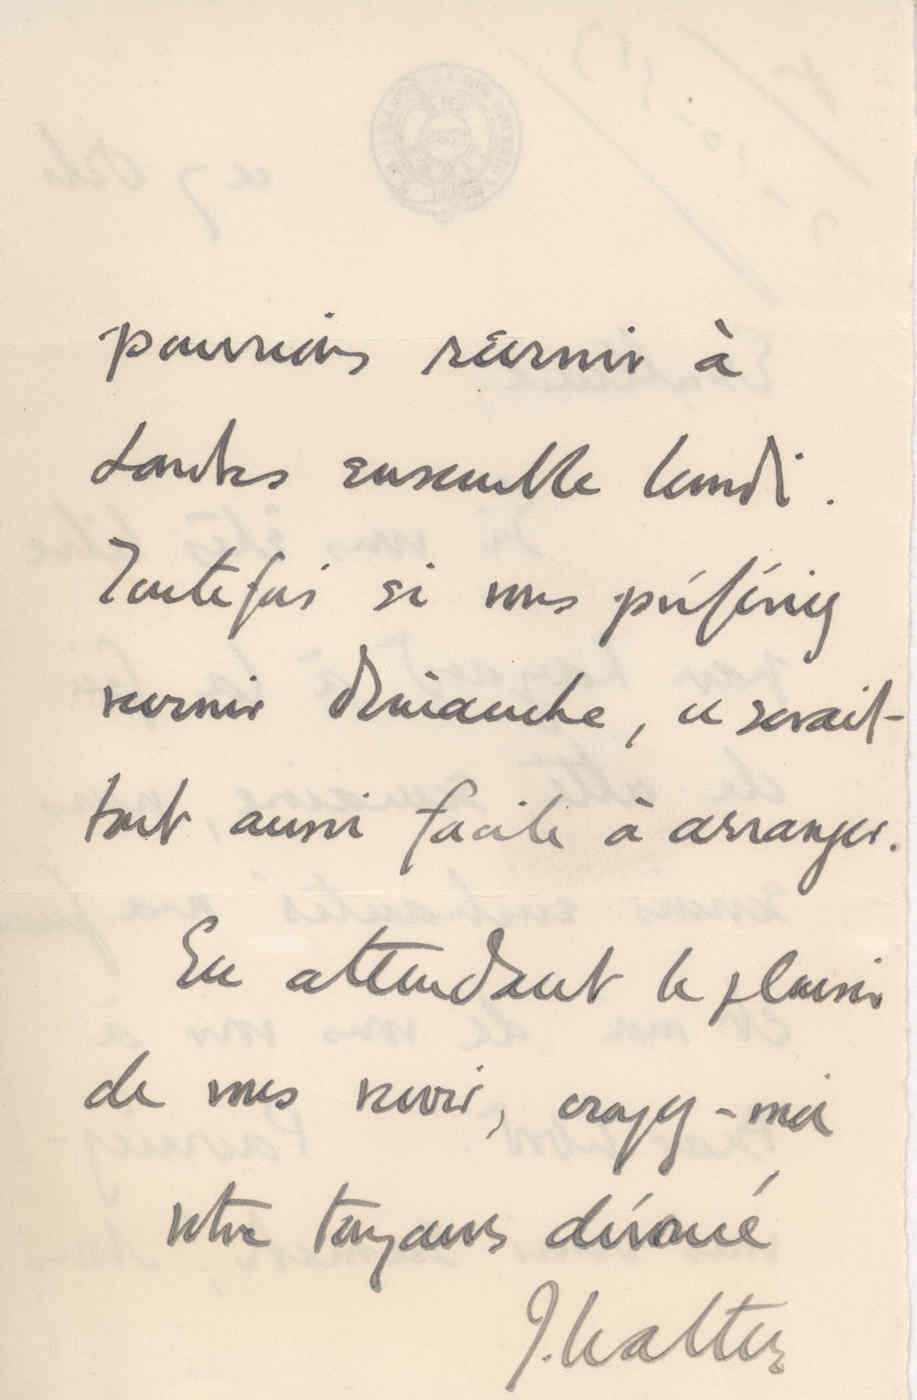 pourrions revenir à
Londres ensemble lundi.
Toutefois si vous préfériez
revenir dimanche, ce serait
tout aussi facile à arranger.
En attendant le plaisir
de vous revoir, croyez-moi
votre toujours dévoué
J. Walter